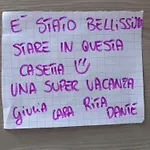 E' STATO BELLISSIMO
STARE IN QUESTA
CASETTA
UNA SUPER VACANZA
GIULIA LARA RITA DANTE